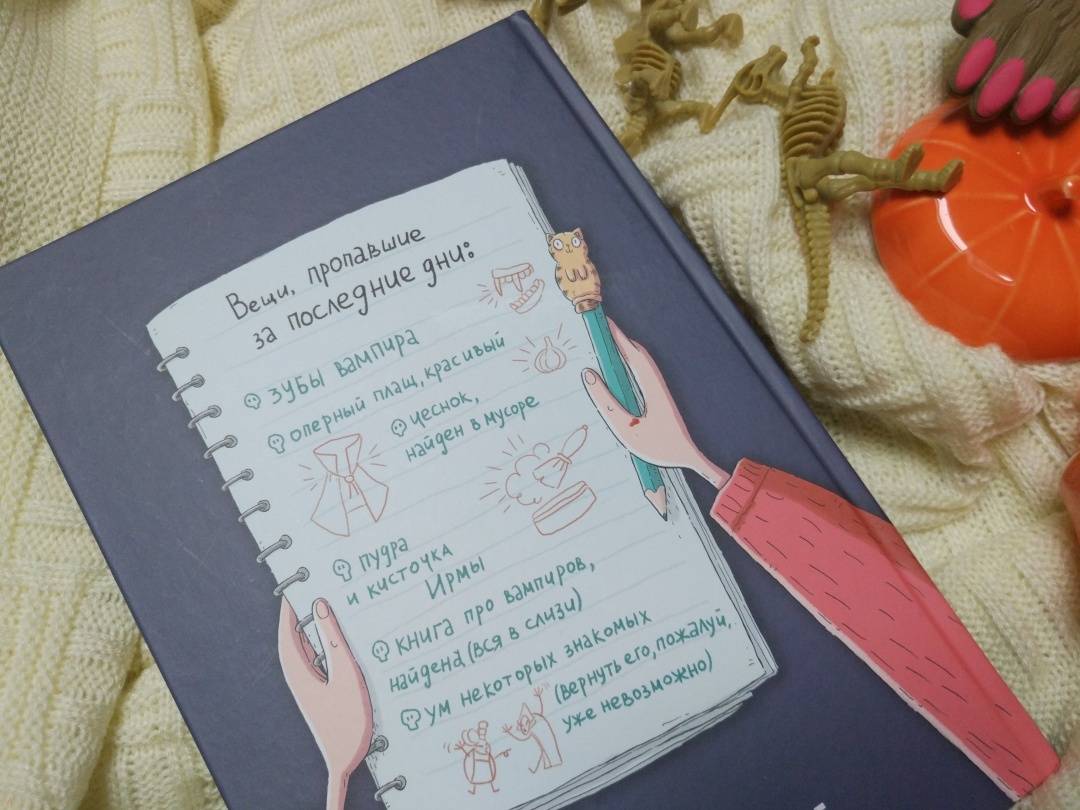 Вещи, пропавшие
за последние дни:
зубы вампира
оперный плащ, красивый
чеснок,
найден в мусоре
пудра
и кисточка
Ирмы
книга про вампиров,
найдена (вся в слизи)
ум некоторых знакомых
(вернуть его, пожалуй,
уже невозможно)